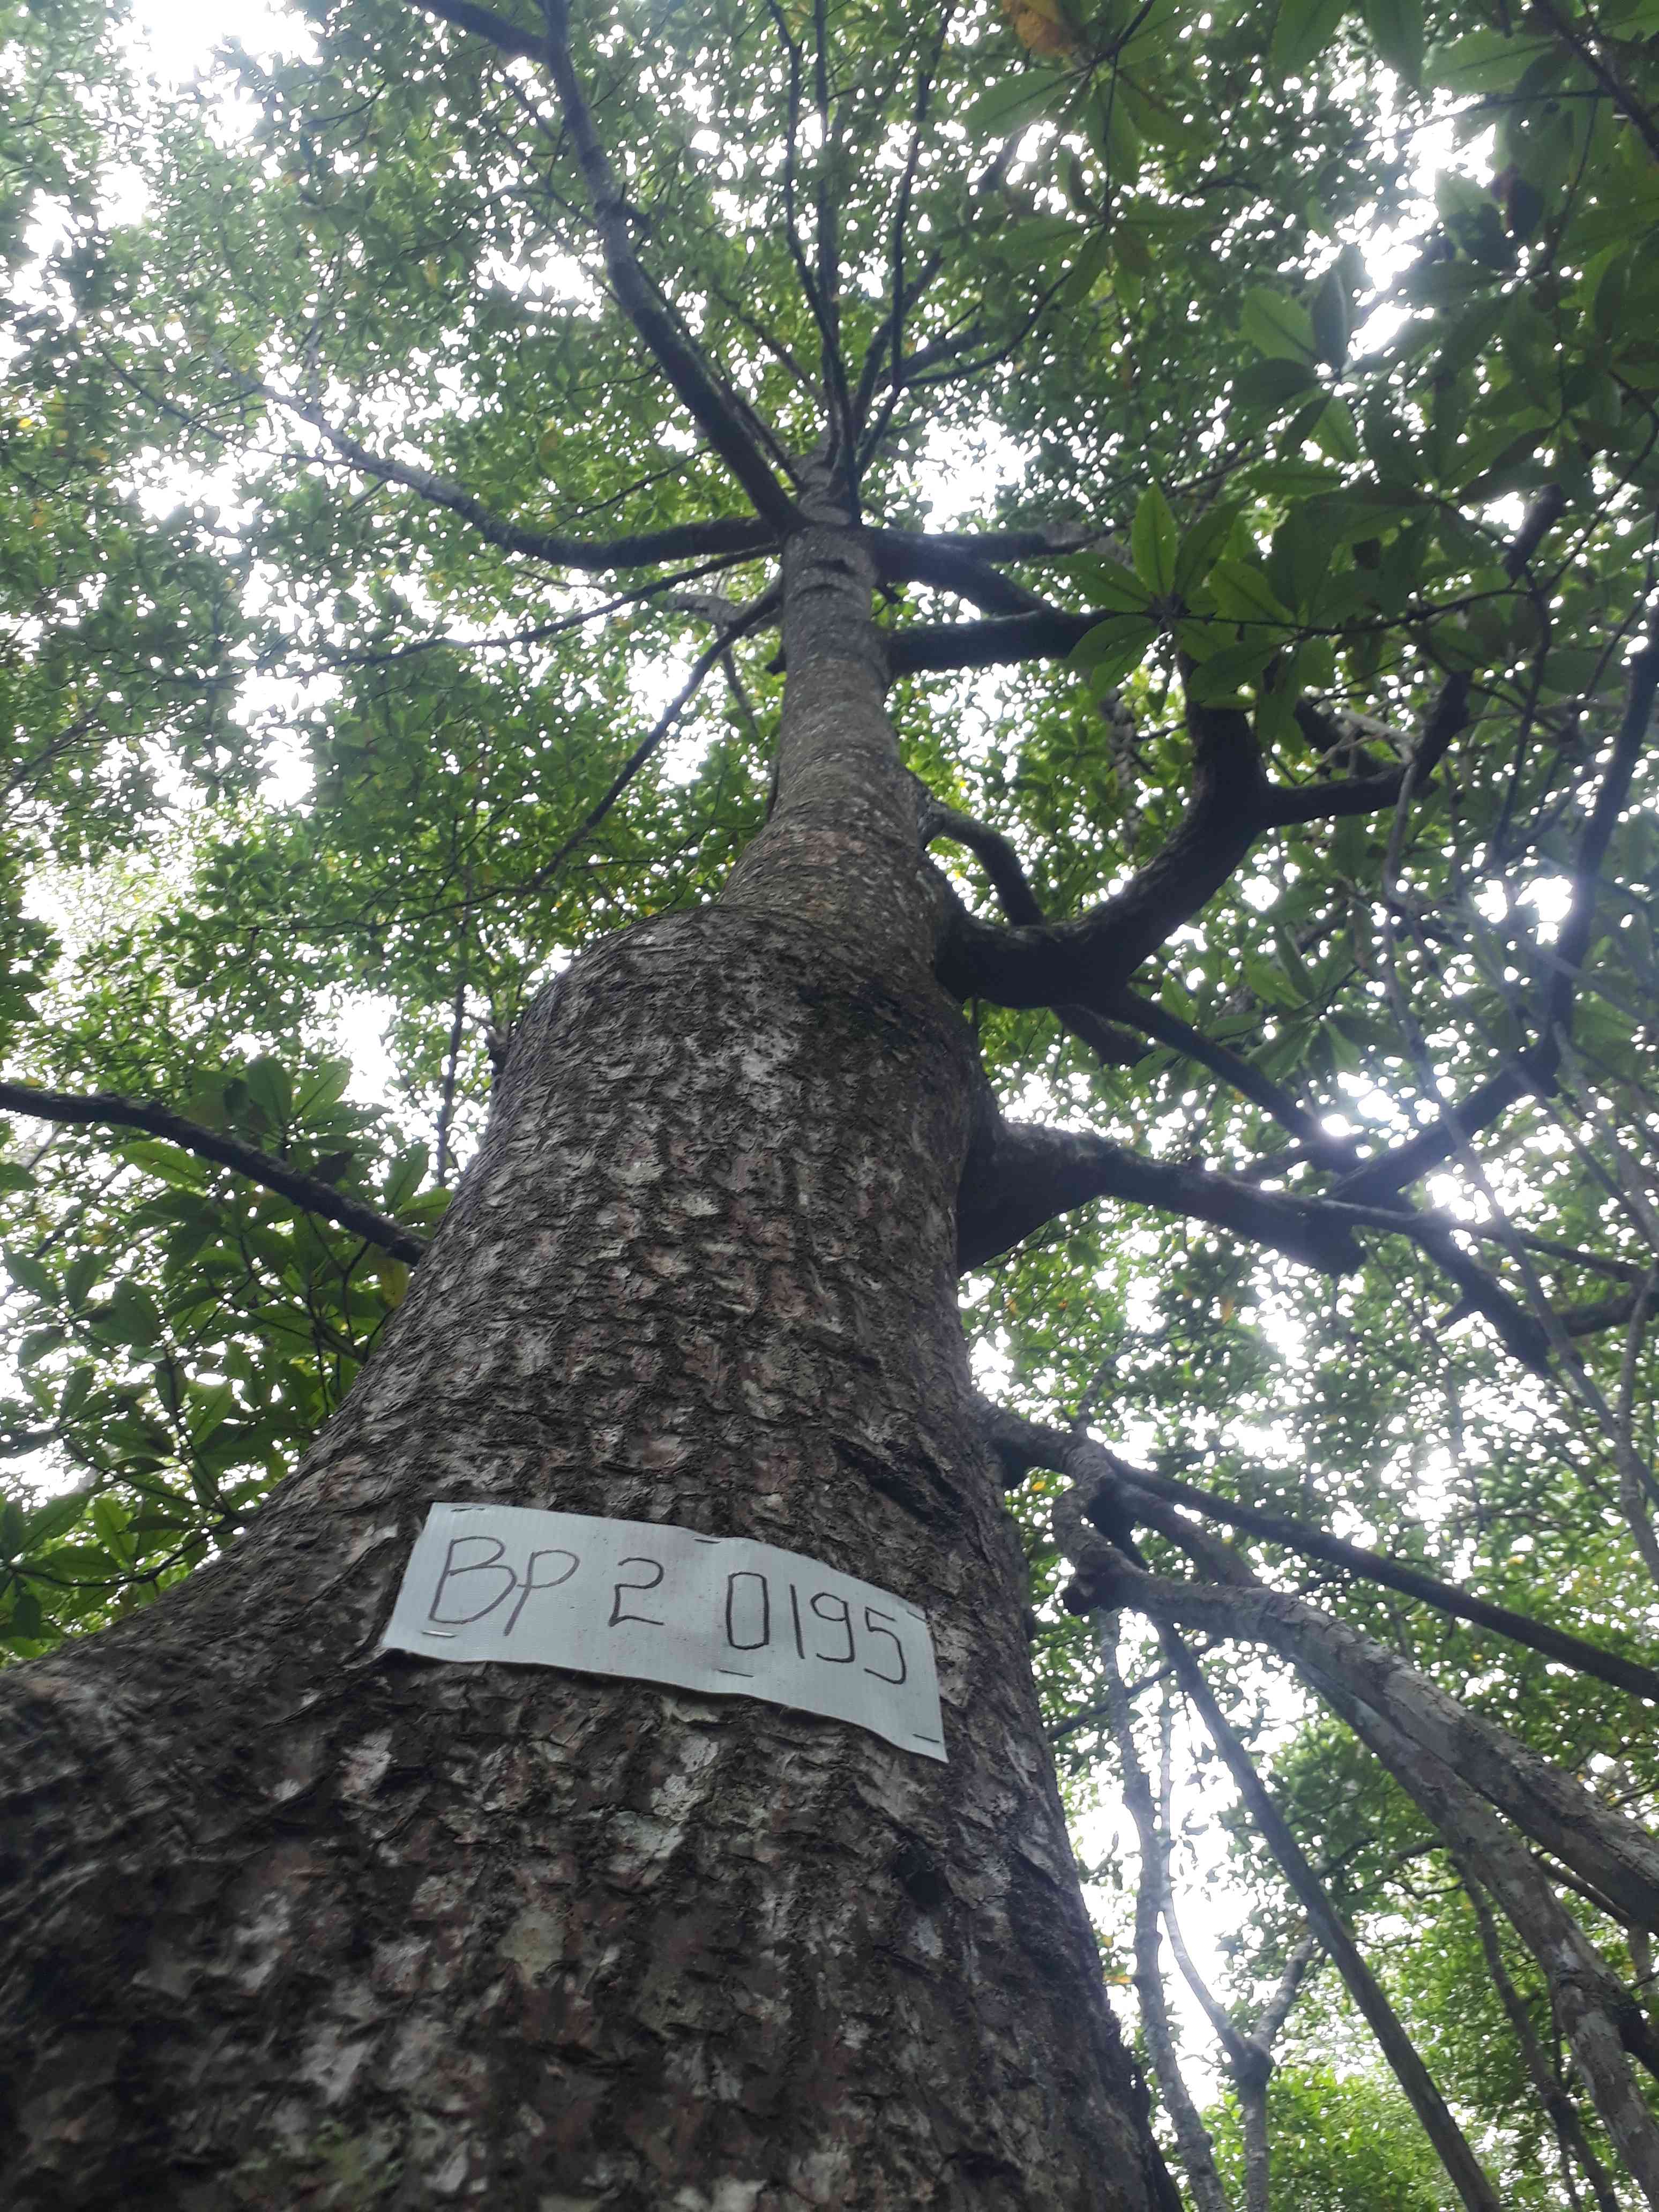 BP 2 0195